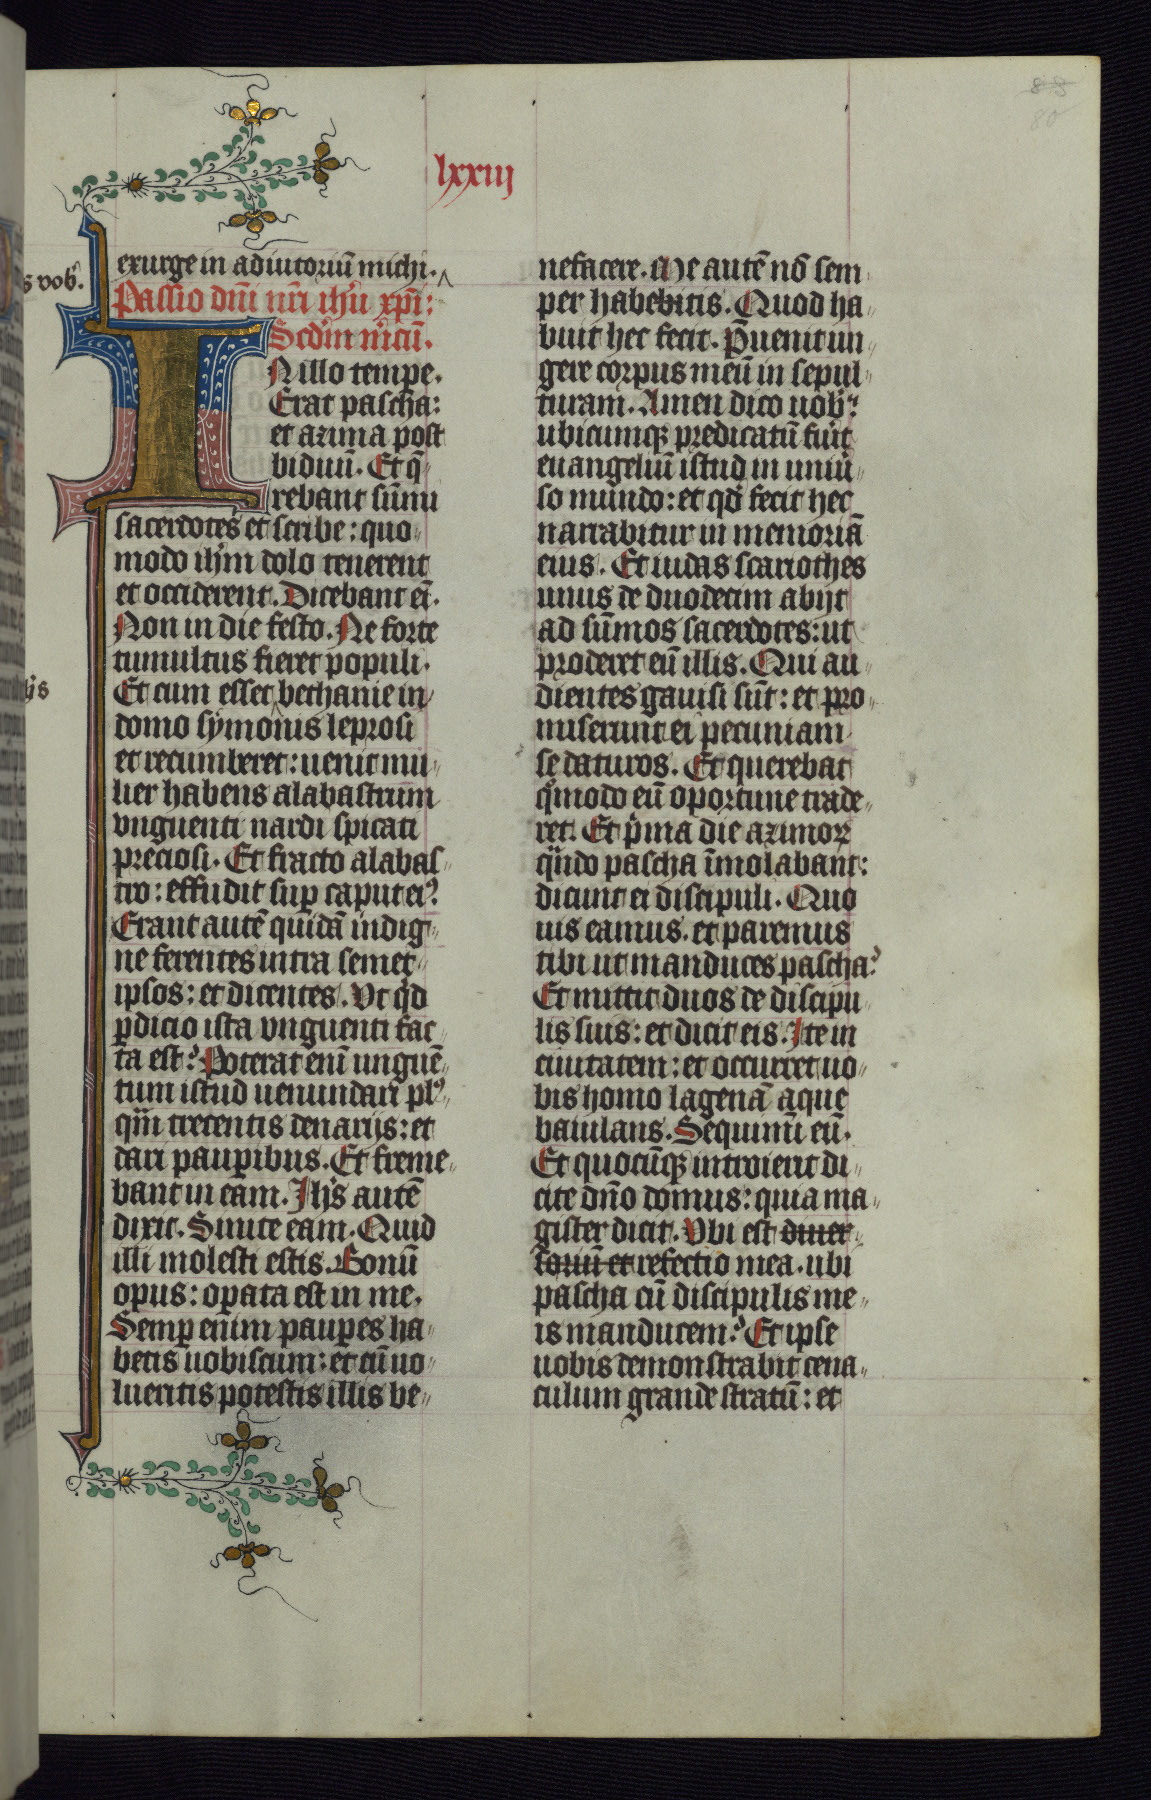 88
80
lxxiij
exurge in adiutoriū michi.
s vob.
Passio dnī nrī ihū xpī:
Scdm mrcū.
IN illo tempe.
Erat pascha:
et azima post
biduū. Et q̄
rebant sūmi
sacerdotes et scribe: quo
modo ihm dolo tenerent
et occiderent. Dicebant eī.
Non in die festo. Ne forte
tumultus fieret populi.
Et cum esset bethanie in
domo symonis leprosi
et recumberet: uenit mu
lier habens alabastrum
vnguenti nardi spicati
preciosi. Et fracto alabas
tro: effudit sup caput eiꝰ.
Erant autē quidā indig
ne ferentes intra semet
ipsos: et dicentes. Vt qd
pdicio ista vnguenti fac
ta est? Poterat enī unguē
tum istud uenundari plꝰ
qm trecentis denarijs: et
dari paupibus. Et freme
bant in eam. Ihs autē
dixit. Sinite eam. Quid
illi molesti estis. Bonū
opus: opata est in me.
Semp enim paupes ha
betis uobiscum: et cū uo
lueritis potestis illis be
nefacere. Me autē nō sem
per habebitis. Quod ha
buit hec fecit. Puenit un
gere corpus meū in sepul
turam. Amen dico uob:
ubicumqꝫ predicatū fuit
euangeliū istud in uniū
so mundo: et qd fecit hec
narrabitur in memoriā
eius. Et iudas scariothes
unus de duodecim abijt
ad sūmos sacerdotes: ut
proderet eū illis. Qui au
dientes gauisi sūt: et pro
miserunt ei pecuniam
se daturos. Et querebat
qmodo eū oportune trade
ret. Et pma die azimoꝝ
qndo pascha īmolabant:
dicunt ei discipuli. Quo
uis eamus. et paremus
tibi ut manduces pascha?
Et mittit duos de discipu
lis suis: et dicit eis. Ite in
ciuitatem: et occurret uo
bis homo lagenā aque
baiulans. Sequimī eū.
Et quocūqꝫ introierit di
cite dnō domus: quia ma
gister dicit. Vbi est diuer
sorium et refectio mea. ubi
pascha cū discipulis me
is manducem? Et ipse
uobis demonstrabit cena
culum grande stratū: et